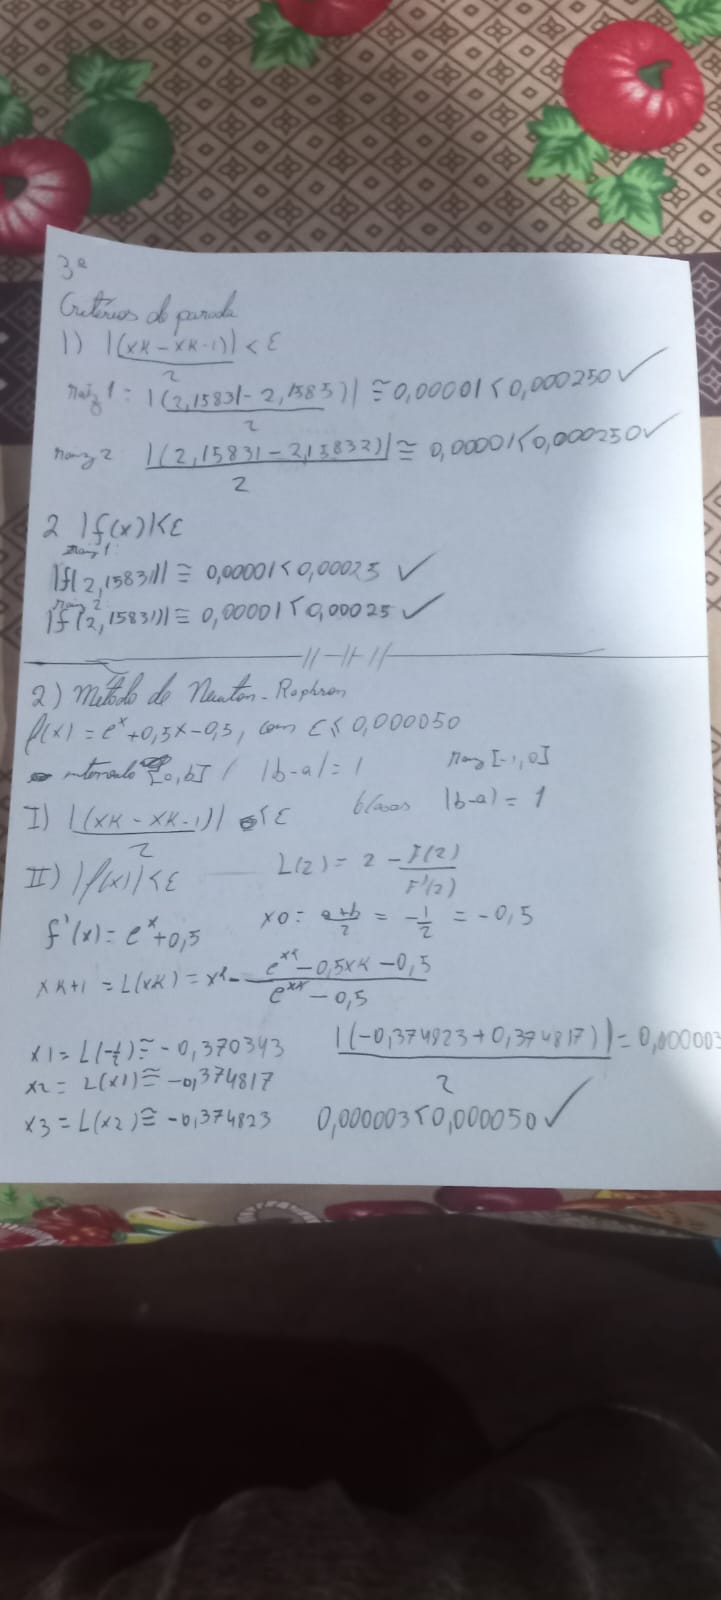 3ª
Critérios de parada
1) |(xk - xk-1)| < ε
2
raiz 1 = |(2,15831 - 2,1585)| ≅ 0,00001 < 0,000250 ✓
2
raiz 2 |(2,15831 - 2,15832)| ≅ 0,00001 < 0,000250 ✓
2
2 |f(x)| < ε
raiz 1:
|f(2,15831)| ≅ 0,00001 < 0,00025 ✓
raiz 2
|f(2,15831)| ≅ 0,00001 < 0,00025 ✓
2) Método de Newton-Raphson
f(x) = e^x + 0,5x - 0,5, com ε ≤ 0,000050
intervalo [a,b] / |b-a| = 1 raiz [-1,0]
I) |(xk - xk-1)| < ε 6 casas |b-a| = 1
2
II) |f(x)| < ε L(2) = 2 - F(2)
F'(2)
f'(x) = e^x + 0,5 x0 = a+b/2 = -1/2 = -0,5
xk+1 = L(xk) = xk - e^xk - 0,5xk - 0,5
e^xk - 0,5
x1 = L(-1/2) ≅ -0,370343 |(-0,374823 + 0,374817)| = 0,000003
x2 = L(x1) ≅ -0,374817 2
x3 = L(x2) ≅ -0,374823 0,000003 < 0,000050 ✓